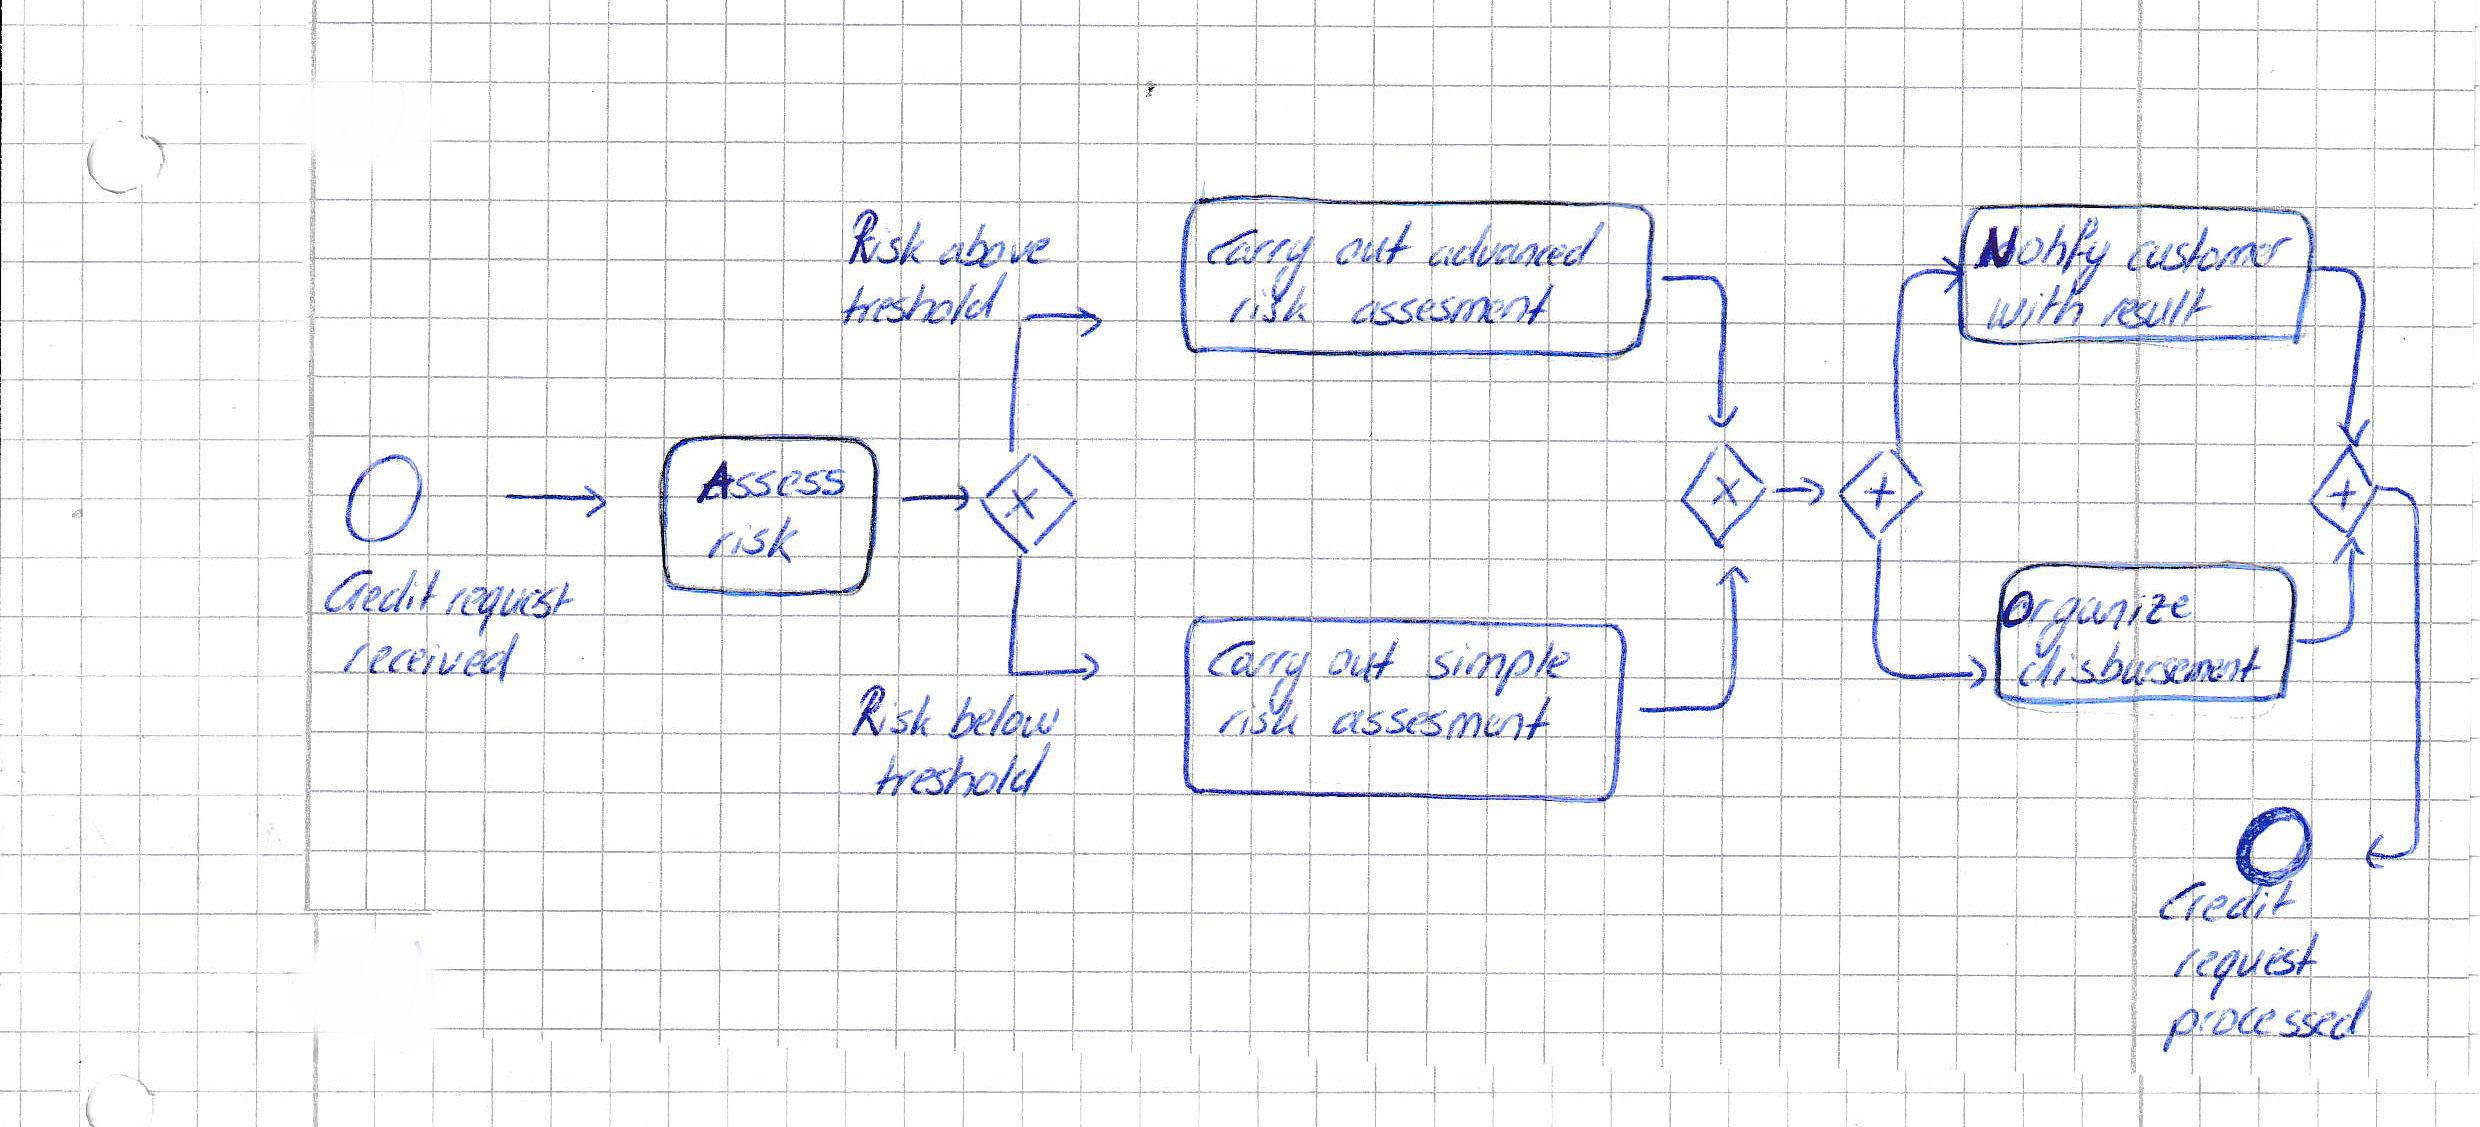 Credit request
received
Assess
risk
Risk above
treshold
Risk below
treshold
Carry out advanced
risk assesment
Carry out simple
risk assesment
Notify customer
with result
Organize
disbursement
Credit
request
processed